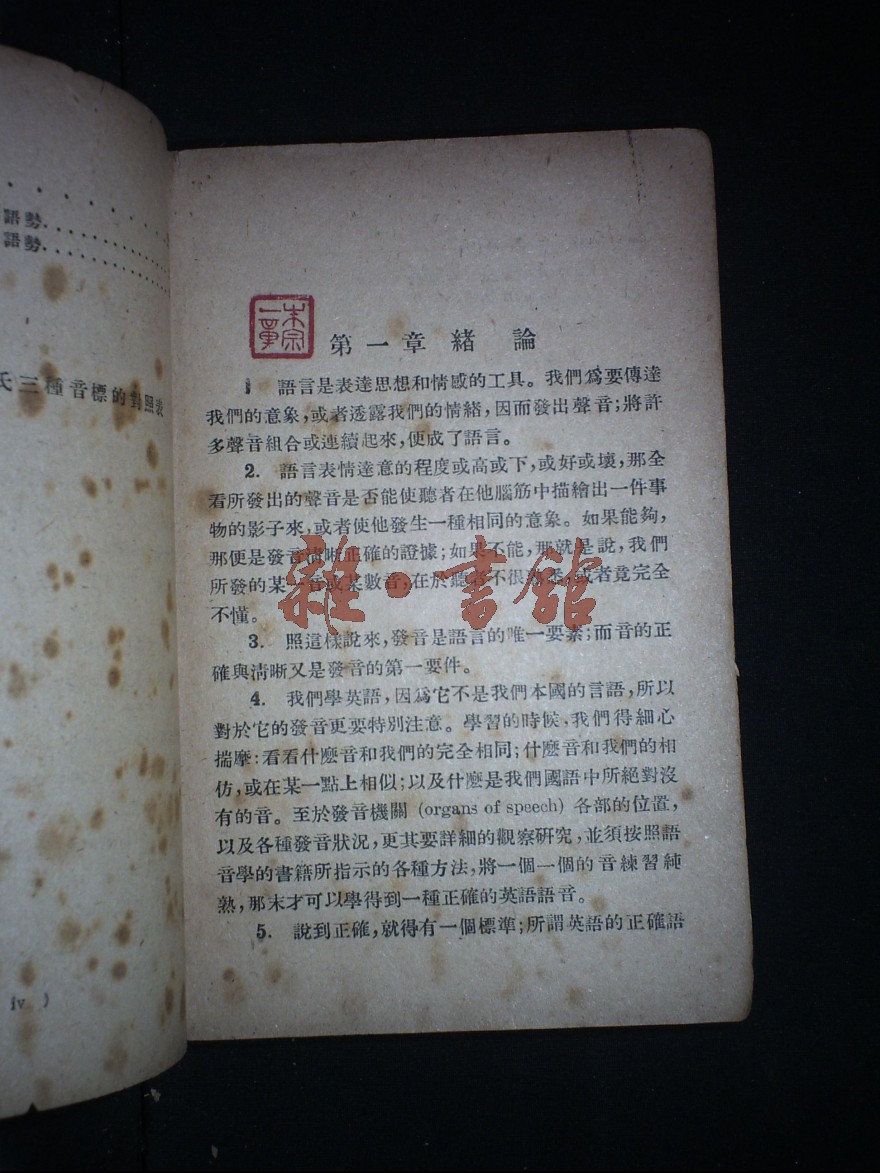 語勢
語勢
氏三種音標的對照表
iv )
第一章 緒 論
1 語言是表達思想和情感的工具。我們爲要傳達
我們的意象,或者透露我們的情緒,因而發出聲音;將許
多聲音組合或連續起來,便成了語言。
2. 語言表情達意的程度或高或下,或好或壞,那全
看所發出的聲音是否能使聽者在他腦筋中描繪出一件事
物的影子來,或者使他發生一種相同的意象。如果能夠,
那便是發音清晰正確的證據;如果不能,那就是說,我們
所發的某一音或某數音,在於聽者不很熟悉,或者竟完全
不懂。
3. 照這樣說來,發音是語言的唯一要素;而音的正
確與清晰又是發音的第一要件。
4. 我們學英語,因爲它不是我們本國的言語,所以
對於它的發音更要特別注意。學習的時候,我們得細心
揣摩:看看什麽音和我們的完全相同;什麽音和我們的相
仿,或在某一點上相似;以及什麽是我們國語中所絕對沒
有的音。至於發音機關 (organs of speech) 各部的位置,
以及各種發音狀況,更其要詳細的觀察研究,並須按照語
音學的書籍所指示的各種方法,將一個一個的音練習純
熟,那末才可以學得到一種正確的英語語音。
5. 說到正確,就得有一個標準;所謂英語的正確語
雜·書館